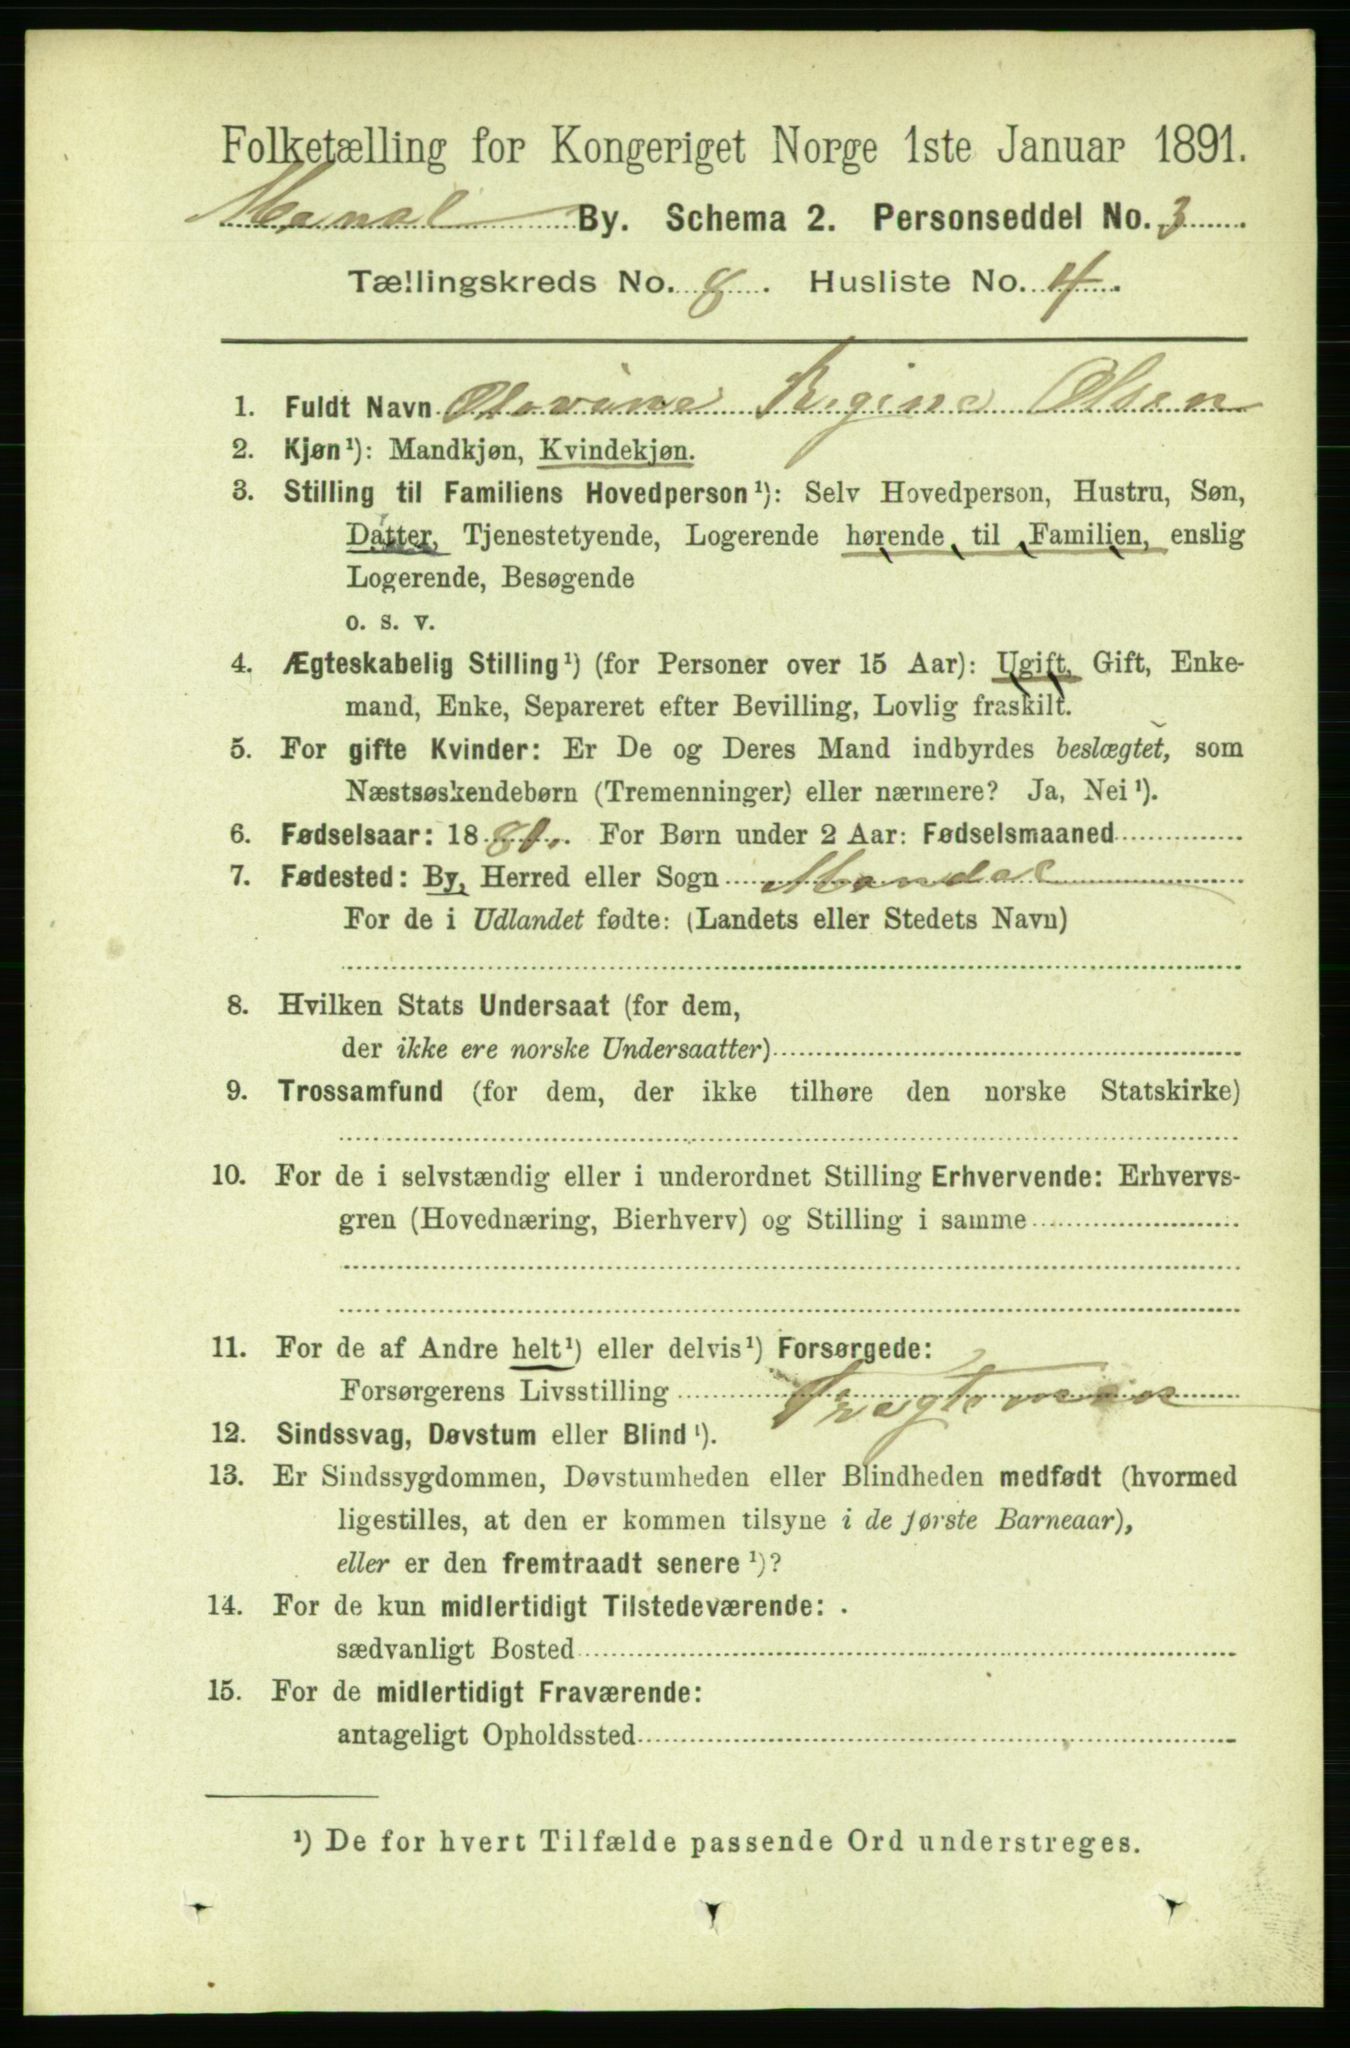 Folketælling for Kongeriget Norge 1ste Januar 1891.
Mandal By. Schema 2. Personseddel No. 3
Tællingskreds No. 8. Husliste No. 4.
1. Fuldt Navn Olovine Regine Olsen
2. Kjøn¹): Mandkjøn, Kvindekjøn.
3. Stilling til Familiens Hovedperson¹): Selv Hovedperson, Hustru, Søn,
Datter, Tjenestetyende, Logerende hørende til Familien, enslig
Logerende, Besøgende
o. s. v.
4. Ægteskabelig Stilling¹) (for Personer over 15 Aar): Ugift, Gift, Enke-
mand, Enke, Separeret efter Bevilling, Lovlig fraskilt.
5. For gifte Kvinder: Er De og Deres Mand indbyrdes beslægtet, som
Næstsøskendebørn (Tremenninger) eller nærmere? Ja, Nei¹).
6. Fødselsaar: 1880. For Børn under 2 Aar: Fødselsmaaned
7. Fødested: By, Herred eller Sogn Mandal
For de i Udlandet fødte: (Landets eller Stedets Navn)
8. Hvilken Stats Undersaat (for dem,
der ikke ere norske Undersaatter)
9. Trossamfund (for dem, der ikke tilhøre den norske Statskirke)
10. For de i selvstændig eller i underordnet Stilling Erhvervende: Erhvervs-
gren (Hovednæring, Bierhverv) og Stilling i samme
11. For de af Andre helt¹) eller delvis¹) Forsørgede:
Forsørgerens Livsstilling Fragteman
12. Sindssvag, Døvstum eller Blind¹).
13. Er Sindssygdommen, Døvstumheden eller Blindheden medfødt (hvormed
ligestilles, at den er kommen tilsyne i de første Barneaar),
eller er den fremtraadt senere¹)?
14. For de kun midlertidigt Tilstedeværende:
sædvanligt Bosted
15. For de midlertidigt Fraværende:
antageligt Opholdssted
¹) De for hvert Tilfælde passende Ord understreges.